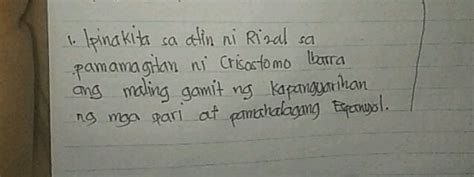 1. Ipinakita sa atin ni Rizal sa
pamamagitan ni Crisostomo Ibarra
ang maling gamit ng kapangyarihan
ng mga pari at pamahalagang Espanyol.